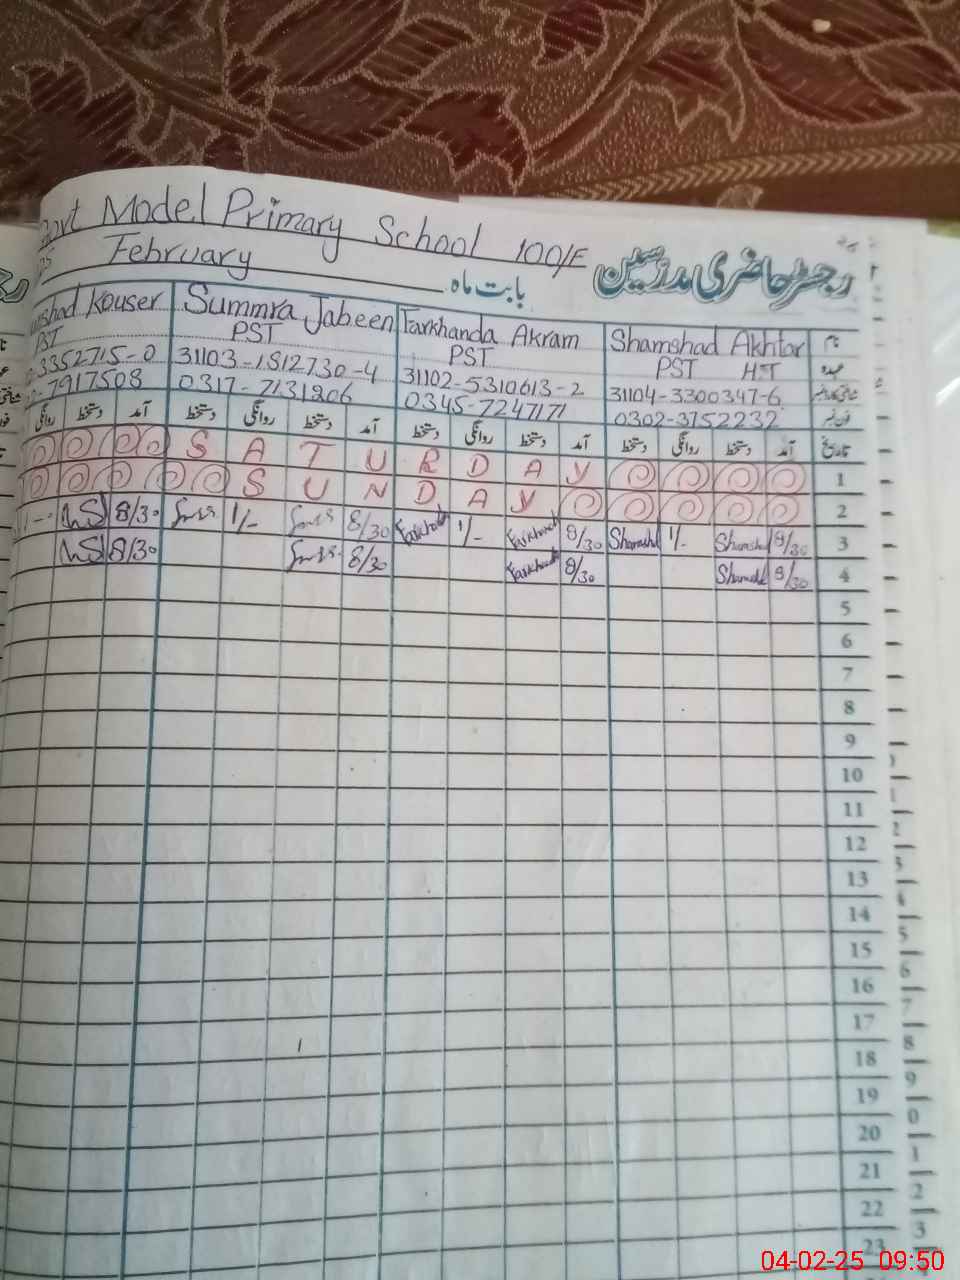 Govt Model Primary School 100/E
رجسٹر حاضری مدرسین
February
بابت ماہ
Kouser Summra Jabeen Farkhanda Akram Shamshad Akhtar نام
PST PST PST PST HT عہدہ
3352715-0 31103-1812730-4 31102-5310613-2 31104-3300347-6
7917508 0317-7131206 0345-7247171 0302-3752232 فون نمبر
روانگی دستخط آمد دستخط روانگی دستخط آمد دستخط روانگی دستخط آمد دستخط روانگی دستخط آمد تاریخ
S A T U R D A Y 1
S U N D A Y 2
8/30 1/- 8/30 Farkhanda 1/- Farkhanda 8/30 Shamshad 1/- Shamshad 8/30 3
8/30 8/30 Farkhanda 8/30 Shamshad 8/30 4
5
6
7
8
9
10
11
12
13
14
15
16
17
18
19
20
21
22
23
04-02-25 09:50